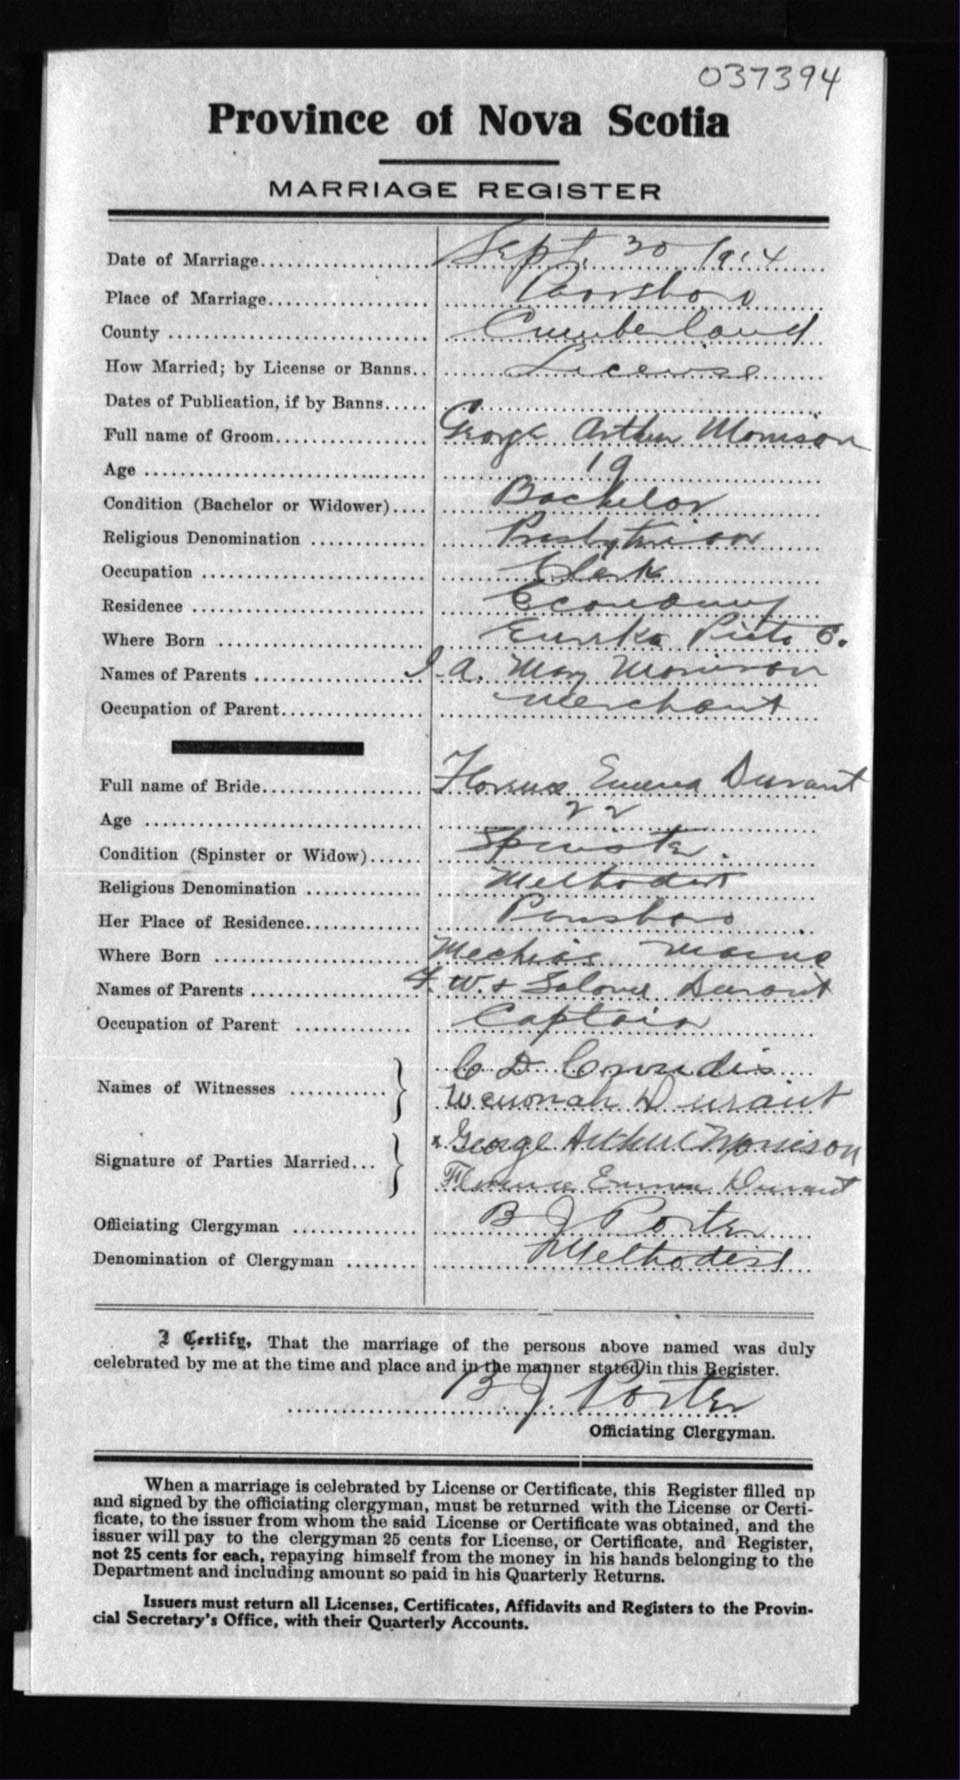 037394
Province of Nova Scotia
MARRIAGE REGISTER
Date of Marriage Sept. 30 1914
Place of Marriage Parrsboro
County Cumberland
How Married; by License or Banns License
Dates of Publication, if by Banns
Full name of Groom George Arthur Morrison
Age 19
Condition (Bachelor or Widower) Bachelor
Religious Denomination Presbyterian
Occupation Clerk
Residence Economy
Where Born Eureka Pictou C.
Names of Parents J. A. Mary Morrison
Occupation of Parent Merchant
Full name of Bride Florence Emma Durant
Age 22
Condition (Spinster or Widow) Spinster.
Religious Denomination Methodist
Her Place of Residence Parrsboro
Where Born Mechias Maine
Names of Parents F. W. & Salome Durant
Occupation of Parent Captain
Names of Witnesses C D
Wenonah Durant
Signature of Parties Married x George Arthur Morrison
Florence Emma Durant
Officiating Clergyman B J Porter
Denomination of Clergyman Methodist
I Certify, That the marriage of the persons above named was duly
celebrated by me at the time and place and in the manner stated in this Register.
B. J. Porter
Officiating Clergyman.
When a marriage is celebrated by License or Certificate, this Register filled up
and signed by the officiating clergyman, must be returned with the License or Certi-
ficate, to the issuer from whom the said License or Certificate was obtained, and the
issuer will pay to the clergyman 25 cents for License, or Certificate, and Register,
not 25 cents for each, repaying himself from the money in his hands belonging to the
Department and including amount so paid in his Quarterly Returns.
Issuers must return all Licenses, Certificates, Affidavits and Registers to the Provin-
cial Secretary's Office, with their Quarterly Accounts.